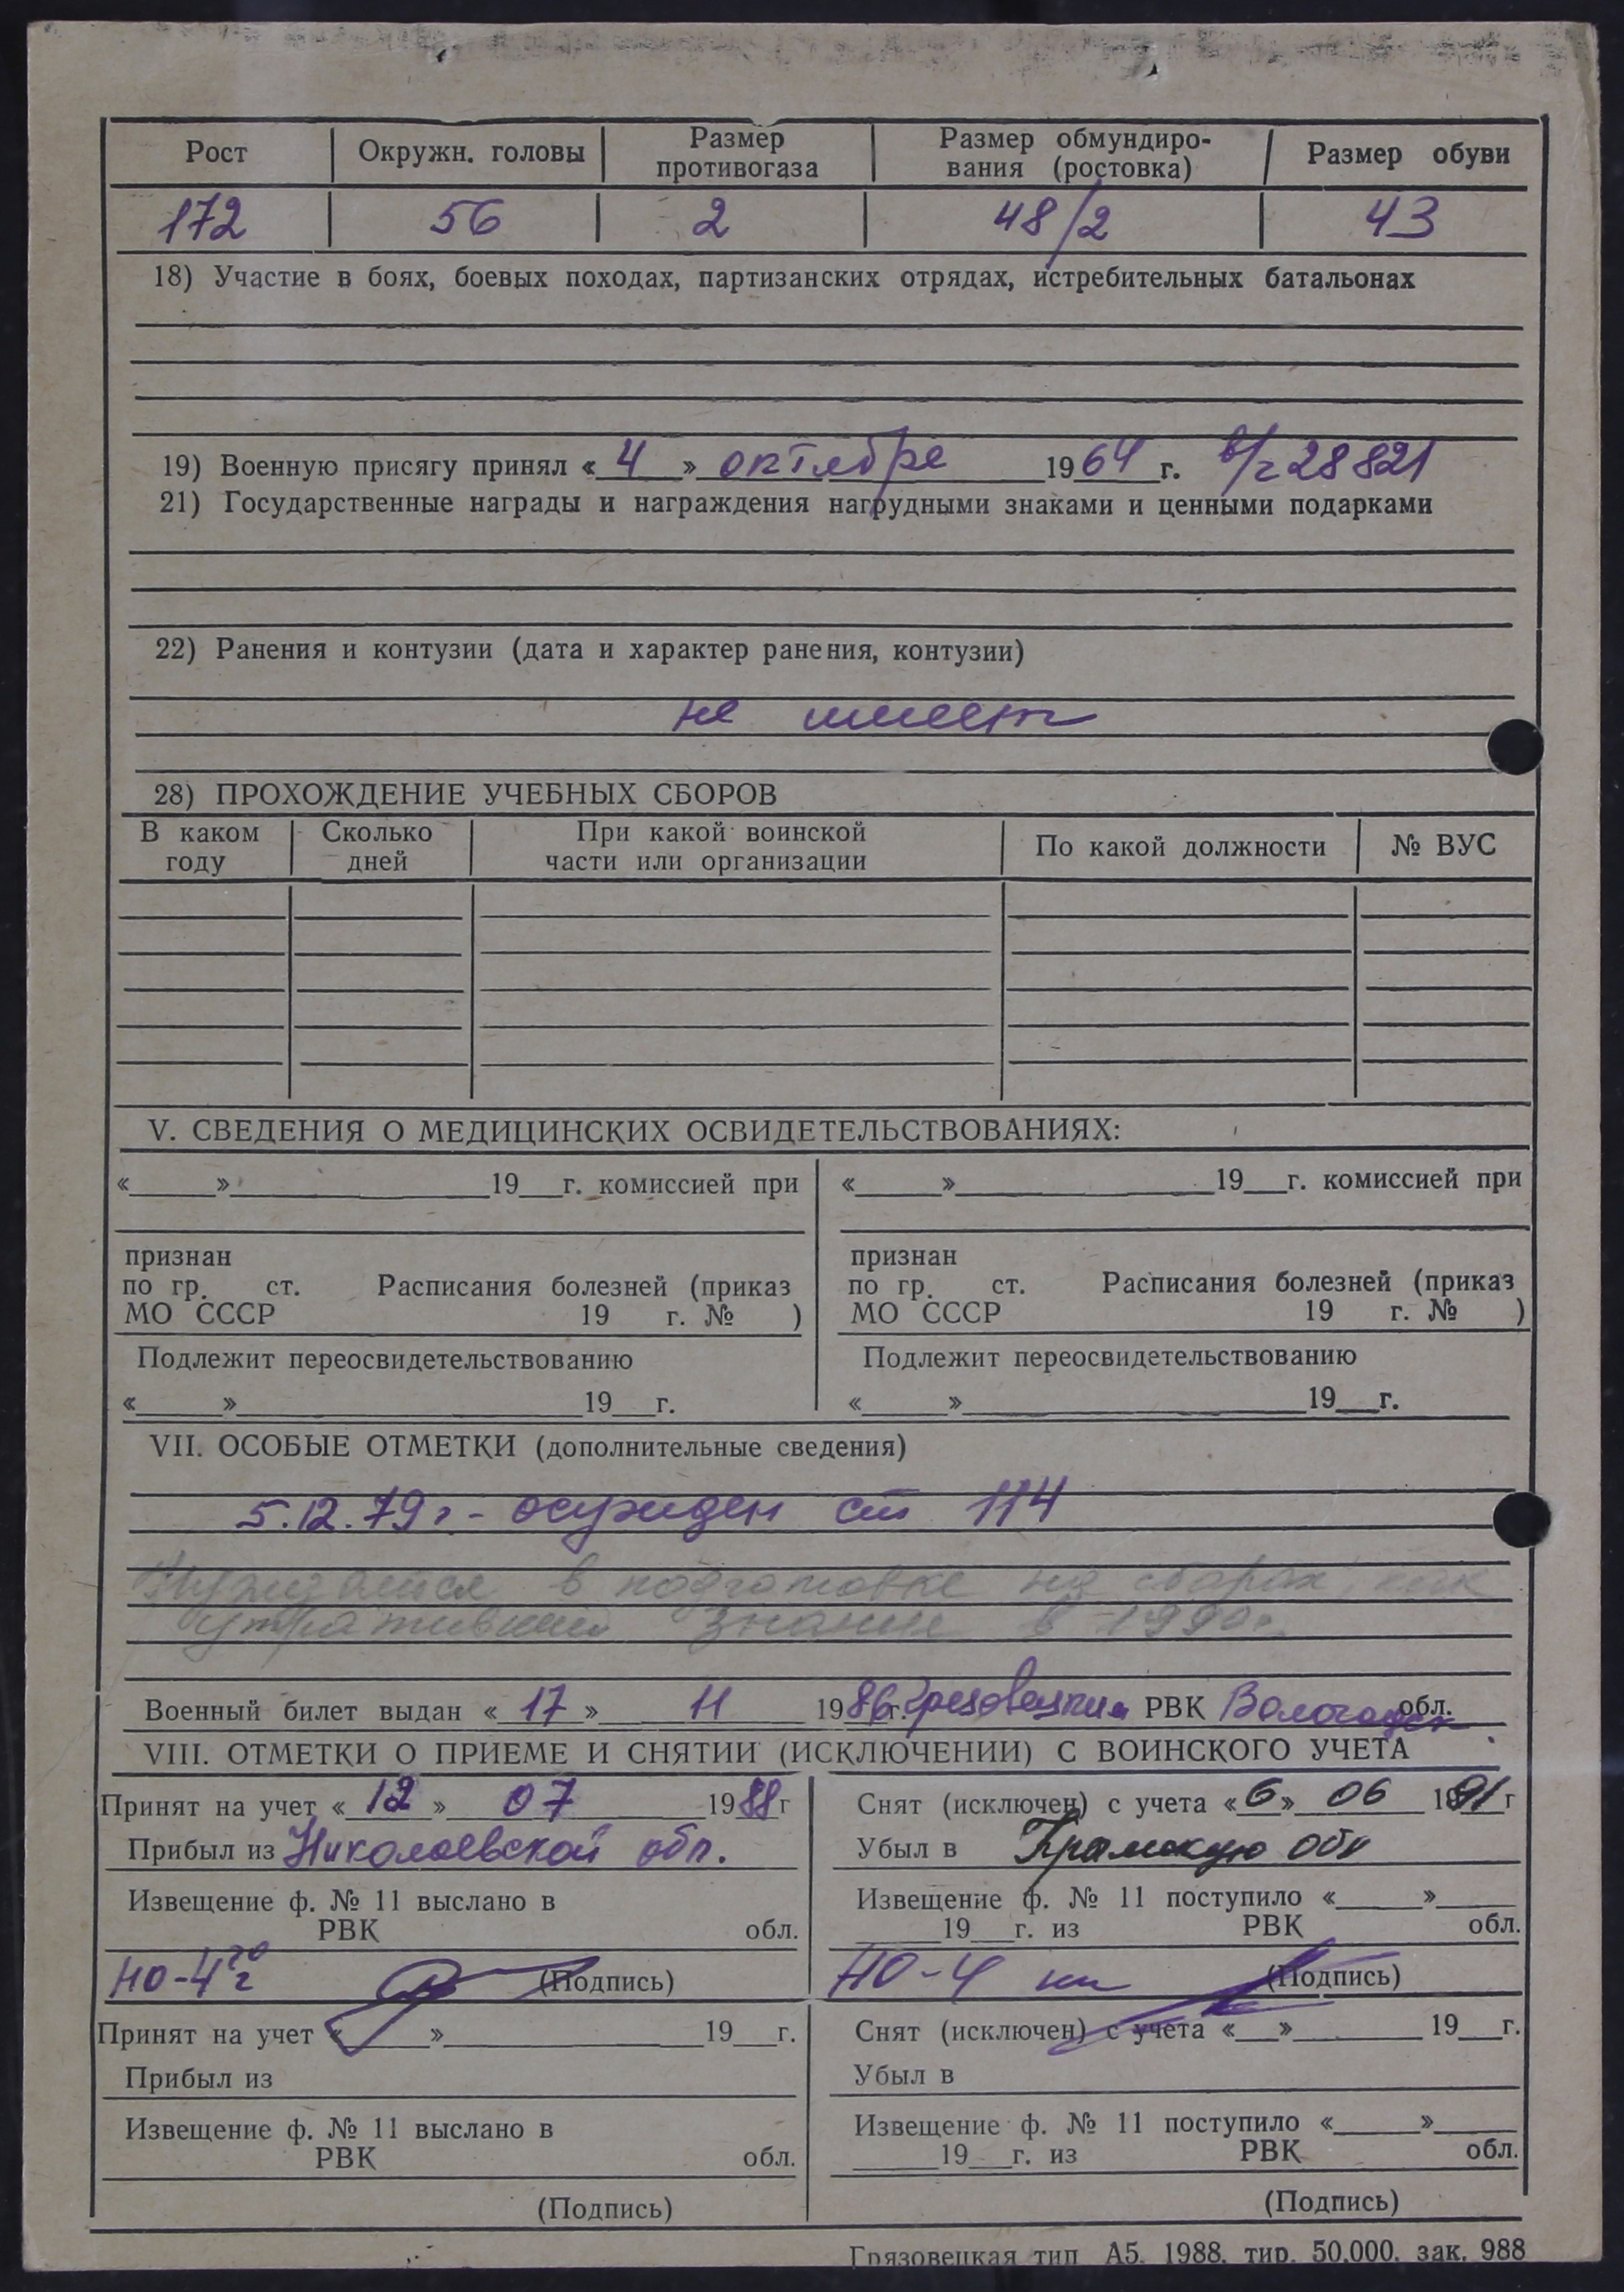 Рост Окружн. головы Размер противогаза Размер обмундиро-вания (ростовка) Размер обуви
172 56 2 48/2 43
18) Участие в боях, боевых походах, партизанских отрядах, истребительных батальонах
19) Военную присягу принял « 4 » октября 1964 г. в/ч 28821
21) Государственные награды и награждения нагрудными знаками и ценными подарками
22) Ранения и контузии (дата и характер ранения, контузии)
не имеет
28) ПРОХОЖДЕНИЕ УЧЕБНЫХ СБОРОВ
В каком году Сколько дней При какой воинской части или организации По какой должности № ВУС
V. СВЕДЕНИЯ О МЕДИЦИНСКИХ ОСВИДЕТЕЛЬСТВОВАНИЯХ:
«___»___19__г. комиссией при «___»___19__г. комиссией при
признан признан
по гр. ст. Расписания болезней (приказ по гр. ст. Расписания болезней (приказ
МО СССР 19 г. № ) МО СССР 19 г. № )
Подлежит переосвидетельствованию Подлежит переосвидетельствованию
«___»___19__г. «___»___19__г.
VII. ОСОБЫЕ ОТМЕТКИ (дополнительные сведения)
5.12.79г. - осужден ст 114
Нуждается в подготовке на сборах, как
утративший знания в 1990г.
Военный билет выдан « 17 » 11 1986г. Грязовецким РВК Вологодск обл.
VIII. ОТМЕТКИ О ПРИЕМЕ И СНЯТИИ (ИСКЛЮЧЕНИИ) С ВОИНСКОГО УЧЕТА
Принят на учет « 12 » 07 1988г Снят (исключен) с учета « 6 » 06 1991г
Прибыл из Николаевской обл. Убыл в Крымскую обл
Извещение ф. № 11 выслано в Извещение ф. № 11 поступило «___»___
РВК обл. ___19__г. из РВК обл.
НО-4 (Подпись) НО-4 (Подпись)
Принят на учет «___»___19__г. Снят (исключен) с учета «__»___19__г.
Прибыл из Убыл в
Извещение ф. № 11 выслано в Извещение ф. № 11 поступило «___»___
РВК обл. ___19__г. из РВК обл.
(Подпись) (Подпись)
Грязовецкая тип А5. 1988. тир. 50.000. зак. 988